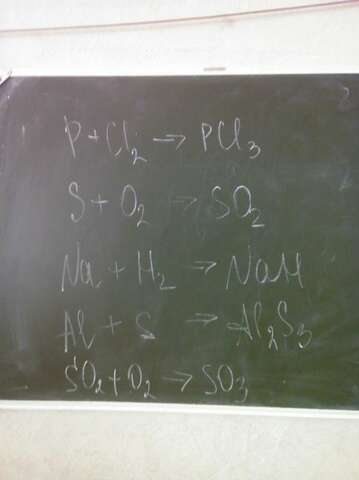 P + Cl₂ → PCl₃
S + O₂ → SO₂
Na + H₂ → NaH
Al + S → Al₂S₃
SO₂ + O₂ → SO₃